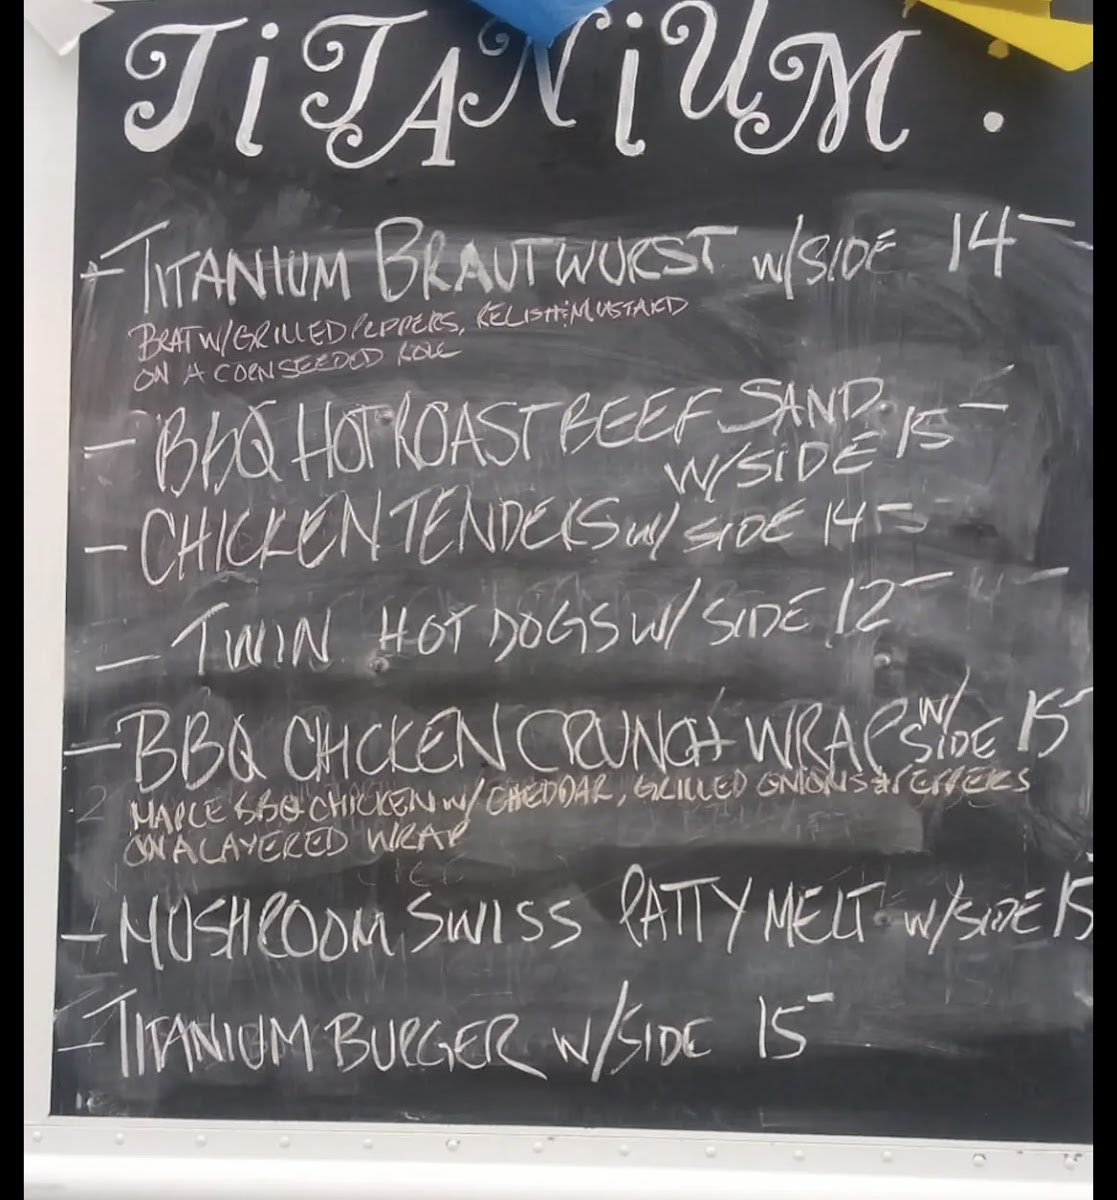 TiTANiUM .
- TITANIUM BRAUTWURST W/SIDE 14-
BRAT W/ GRILLED PEPPERS, RELISH & MUSTARD
ON A CORN SEEDED ROLL
- BBQ HOT ROAST BEEF SAND. 15-
W/SIDE
- CHICKEN TENDERS W/ SIDE 14-
- TWIN HOT DOGS W/ SIDE 12-
- BBQ CHICKEN CRUNCH WRAP W/ SIDE 15-
MAPLE BBQ CHICKEN W/ CHEDDAR, GRILLED ONIONS & PEPPERS
ON A LAYERED WRAP
- MUSHROOM SWISS PATTY MELT W/SIDE 15
- TITANIUM BURGER W/SIDE 15-